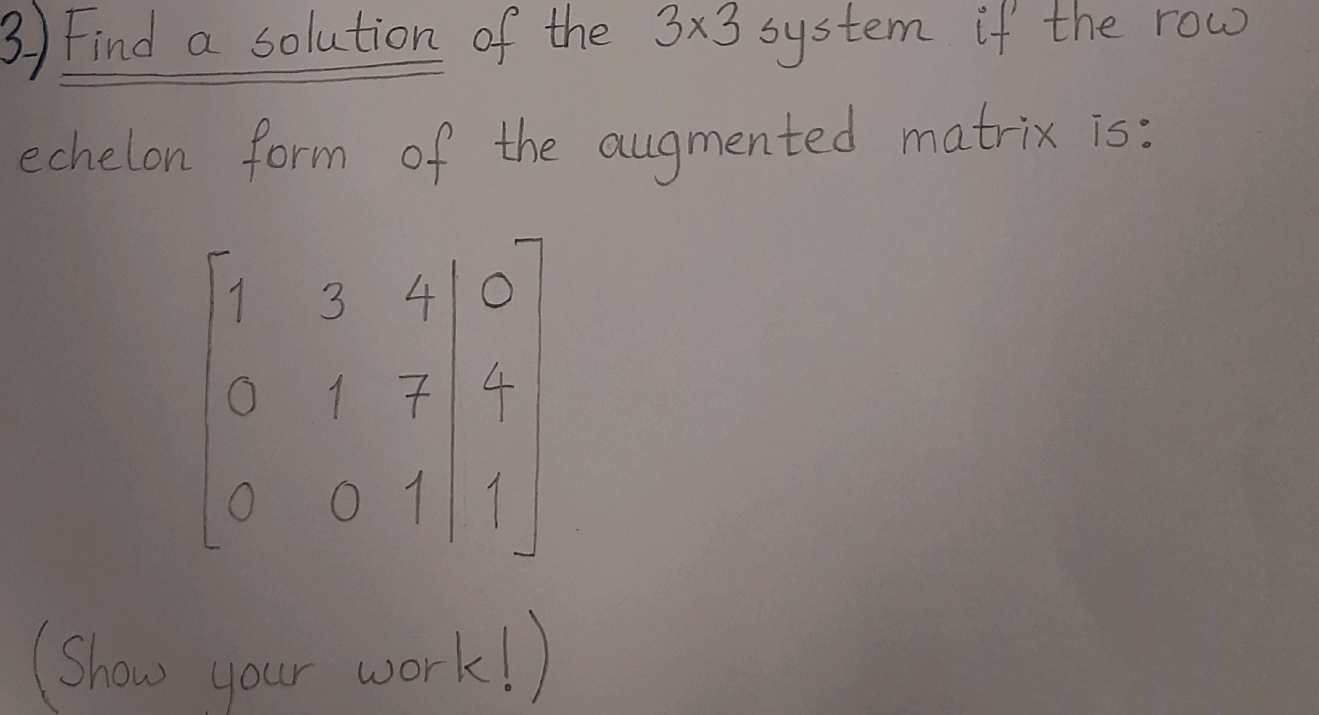 3.) Find a solution of the 3x3 system if the row
echelon form of the augmented matrix is:
1 3 4 | 0
0 1 7 | 4
0 0 1 | 1
(Show your work!)